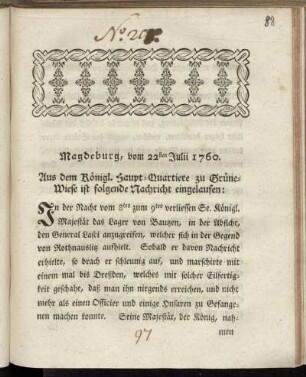 No 20.
88
Magdeburg, vom 22sten Julii 1760.
Aus dem Königl. Haupt-Quartiere zu Grüne-
Wiese ist folgende Nachricht eingelaufen:
In der Nacht vom 8ten zum 9ten verliessen Se. Königl.
Majestät das Lager von Bautzen, in der Absicht,
den General Lasci anzugreifen, welcher sich in der Gegend
von Rothnauslitz aufhielt. Sobald er davon Nachricht
erhielte, so brach er schleunig auf, und marschirte mit
einem mal bis Dresden, welches mit solcher Eilfertig-
keit geschahe, daß man ihn nirgends erreichen, und nicht
mehr als einen Officier und einige Husaren zu Gefange-
nen machen konnte. Seine Majestät, der König, nah-
97
men